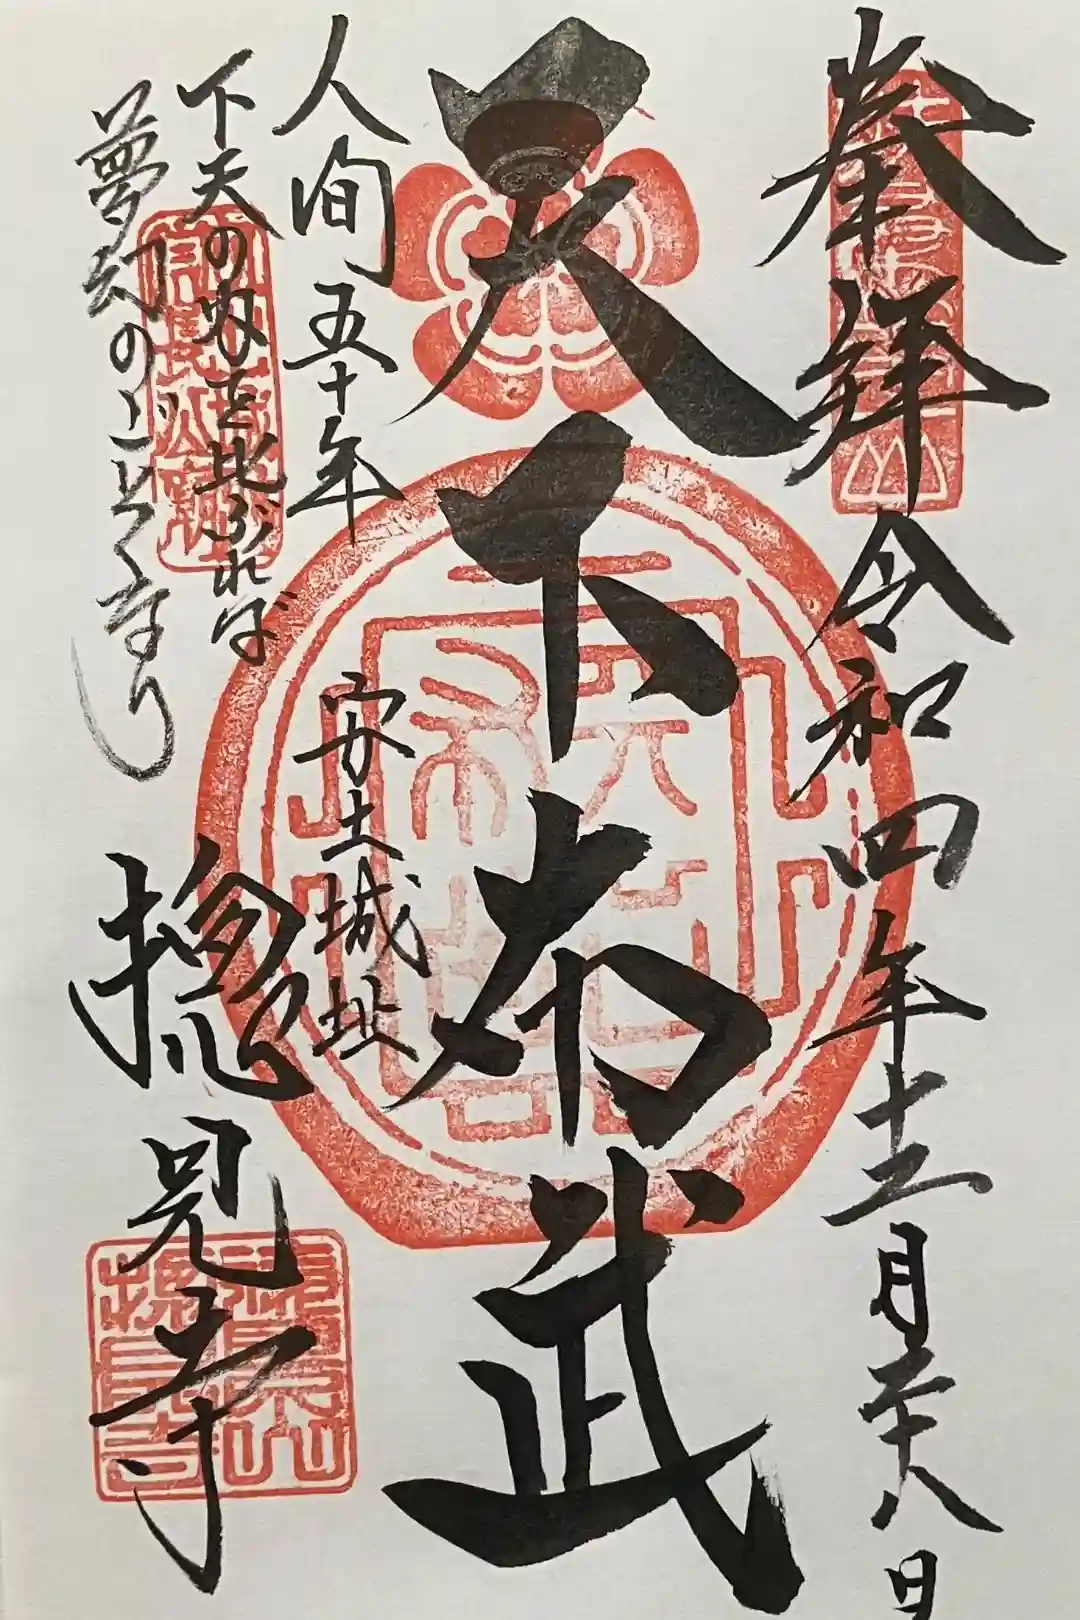 奉拝 令和四年十一月二十八日
天下布武
人間五十年
下天の内を比ぶれば
夢幻のごとくなり
安土城址
摠見寺